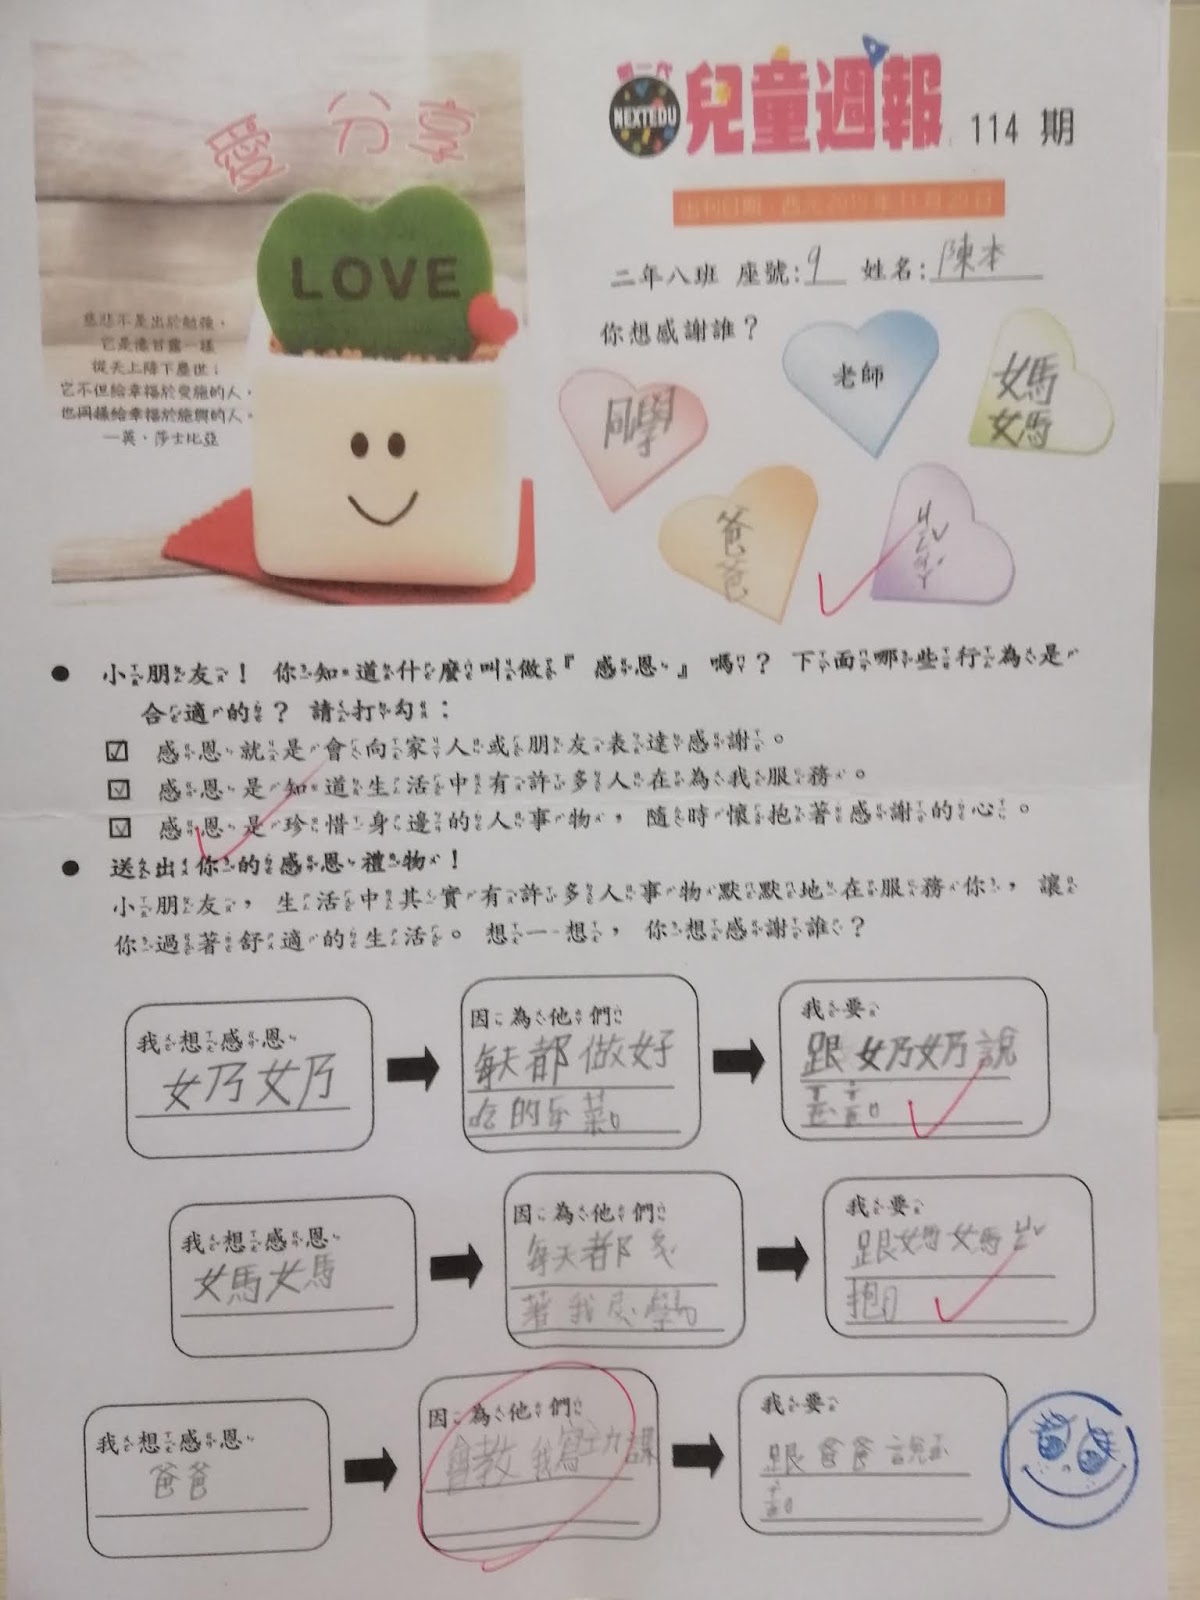 愛分享
LOVE
慈悲不是出於勉強，
它是像甘露一樣
從天上降下塵世；
它不但給幸福於受施的人，
也同樣給幸福於施與的人。
—英．莎士比亞
NEXTEDU
兒童週報 114 期
出刊日期：西元2019年11月29日
二年八班 座號：9 姓名：陳本
你想感謝誰？
同學
老師
媽媽
爸爸
● 小朋友！你知道什麼叫做『感恩』嗎？下面哪些行為是
合適的？請打勾：
☑ 感恩就是會向家人或朋友表達感謝。
☑ 感恩是知道生活中有許多人在為我服務。
☑ 感恩是珍惜身邊的人事物，隨時懷抱著感謝的心。
● 送出你的感恩禮物！
小朋友，生活中其實有許多人事物默默地在服務你，讓
你過著舒適的生活。想一想，你想感謝誰？
我想感恩
奶奶
因為他們
每天都做好
吃的 菜
我要
跟奶奶說
我想感恩
媽媽
因為他們
每天都
著我 學
我要
跟媽媽
抱
我想感恩
爸爸
因為他們
會教我寫功課
我要
跟爸爸說